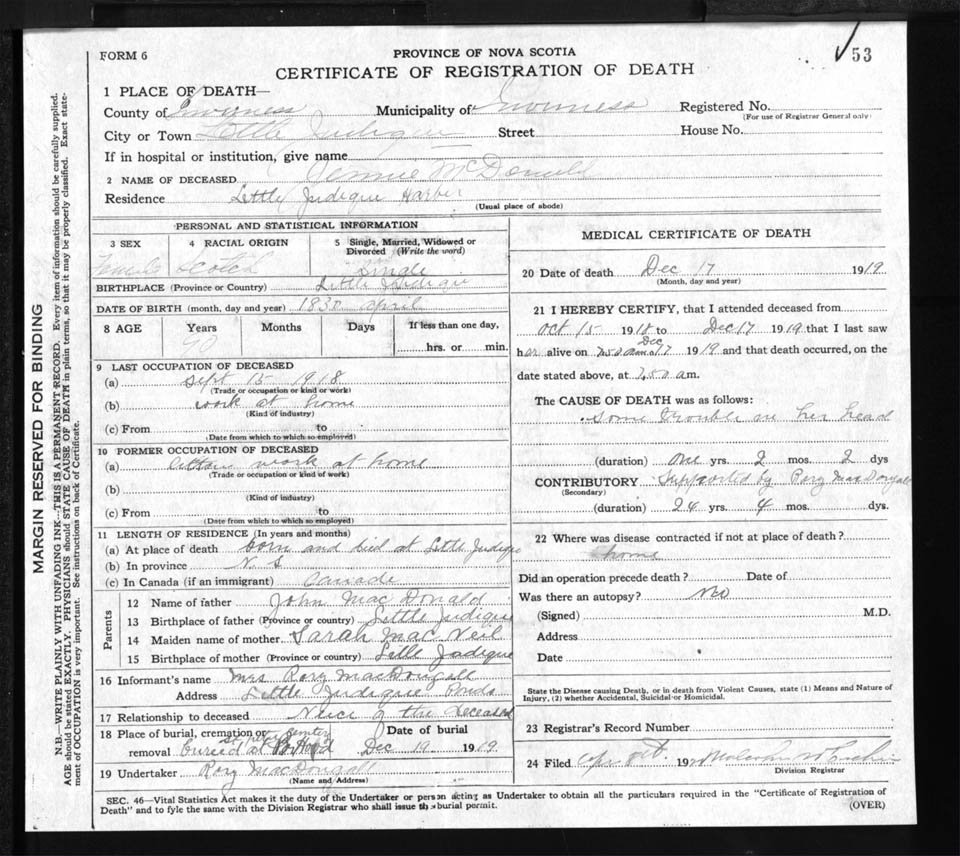 53
FORM 6
PROVINCE OF NOVA SCOTIA
CERTIFICATE OF REGISTRATION OF DEATH
1 PLACE OF DEATH—
County of Inverness Municipality of Inverness Registered No.
(For use of Registrar General only)
City or Town Little Judique Street House No.
If in hospital or institution, give name
2 NAME OF DECEASED Jennie McDonald
Residence Little Judique Harber
(Usual place of abode)
PERSONAL AND STATISTICAL INFORMATION
3 SEX 4 RACIAL ORIGIN 5 Single, Married, Widowed or Divorced (Write the word)
Female Scotch Single
BIRTHPLACE (Province or Country) Little Judique
DATE OF BIRTH (month, day and year) 1830 april
8 AGE Years Months Days If less than one day,
90 hrs. or min.
9 LAST OCCUPATION OF DECEASED
(a) Sept 15 1918
(Trade or occupation or kind of work)
(b) work at home
(Kind of industry)
(c) From to
(Date from which to which so employed)
10 FORMER OCCUPATION OF DECEASED
(a) work at home
(Trade or occupation or kind of work)
(b)
(Kind of industry)
(c) From to
(Date from which to which so employed)
11 LENGTH OF RESIDENCE (In years and months)
(a) At place of death born and died at Little Judique
(b) In province N S
(c) In Canada (if an immigrant) Canade
Parents
12 Name of father John Mac Donald
13 Birthplace of father (Province or country) Little Judique
14 Maiden name of mother Sarah Mac Neil
15 Birthplace of mother (Province or country) Little Judique
16 Informant's name Mrs Rory MacDougall
Address Little Judique Ponds
17 Relationship to deceased Neice of the deceased
18 Place of burial, cremation or removal Date of burial
buried at Dec 19 1919
19 Undertaker Rory MacDougall
(Name and Address)
MEDICAL CERTIFICATE OF DEATH
20 Date of death Dec 17 1919
(Month, day and year)
21 I HEREBY CERTIFY, that I attended deceased from
oct 15 1918 to Dec 17 1919 that I last saw
her alive on Dec 17 1919 and that death occurred, on the
date stated above, at 7.50 a m.
The CAUSE OF DEATH was as follows:
Some trouble on her head
(duration) one yrs. 2 mos. 2 dys
CONTRIBUTORY Supported by Rory MacDougall
(Secondary)
(duration) 24 yrs. 4 mos. dys.
22 Where was disease contracted if not at place of death?
home
Did an operation precede death? Date of
Was there an autopsy? No
(Signed) M.D.
Address
Date
State the Disease causing Death, or in death from Violent Causes, state (1) Means and Nature of
Injury, (2) whether Accidental, Suicidal or Homicidal.
23 Registrar's Record Number
24 Filed 192
Division Registrar
SEC. 46—Vital Statistics Act makes it the duty of the Undertaker or person acting as Undertaker to obtain all the particulars required in the "Certificate of Registration of
Death" and to fyle the same with the Division Registrar who shall issue the burial permit. (OVER)
MARGIN RESERVED FOR BINDING
N.B.—WRITE PLAINLY WITH UNFADING INK—THIS IS A PERMANENT RECORD. Every item of information should be carefully supplied.
AGE should be stated EXACTLY. PHYSICIANS should STATE CAUSE OF DEATH in plain terms, so that it may be properly classified. Exact state-
ment of OCCUPATION is very important. See instructions on back of Certificate.